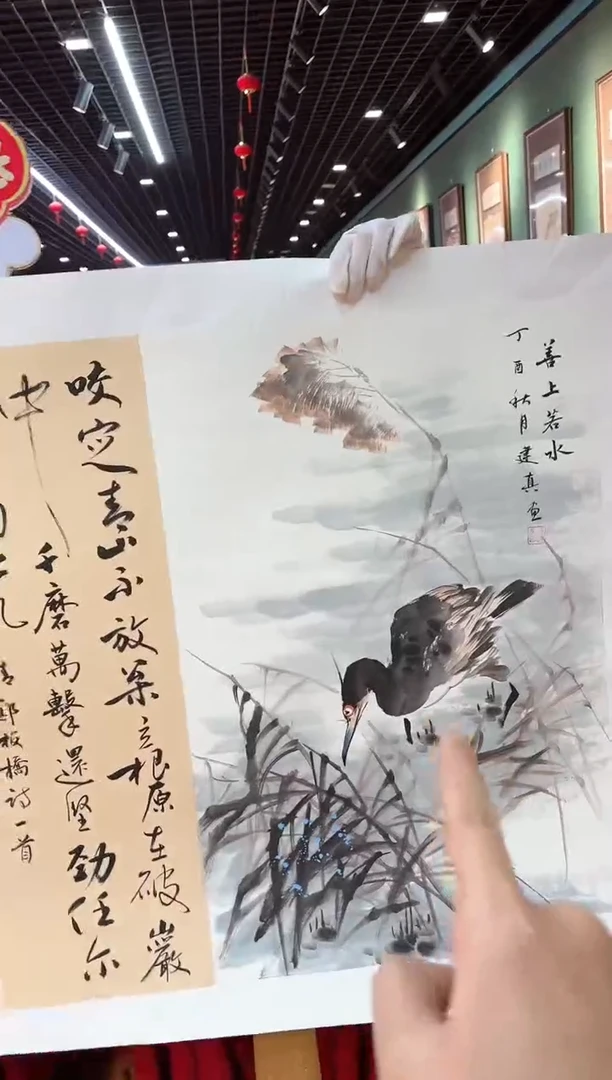 善上若水
丁酉秋月建真画
咬定青山不放松立根原在破巖
中千磨萬擊還坚劲任尔
清鄭板橋詩一首